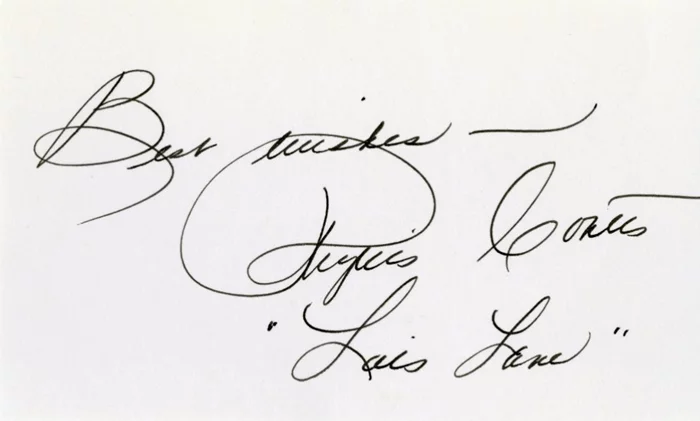 Best wishes —
Phyllis Coates
"Lois Lane"